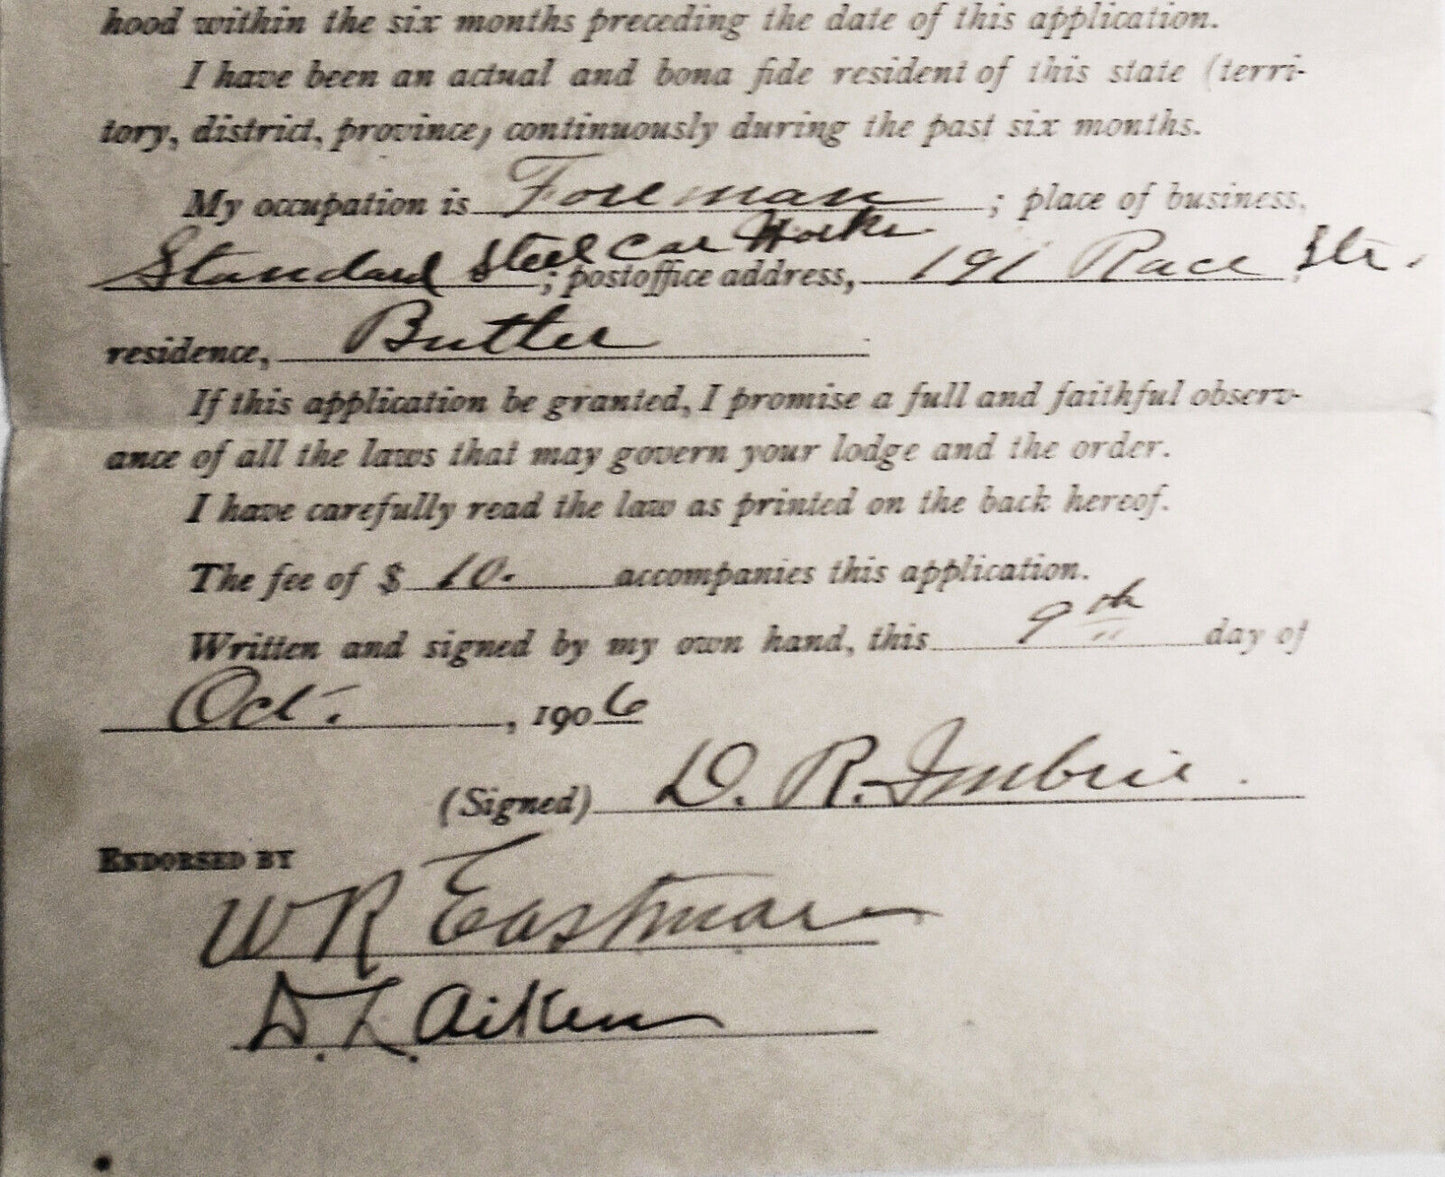 hood within the six months preceding the date of this application.
I have been an actual and bona fide resident of this state (terri-
tory, district, province) continuously during the past six months.
My occupation is Foreman ; place of business,
Standard Steel Car Works ; postoffice address, 191 Race Str.
residence, Butler
If this application be granted, I promise a full and faithful observ-
ance of all the laws that may govern your lodge and the order.
I have carefully read the law as printed on the back hereof.
The fee of $ 10. accompanies this application.
Written and signed by my own hand, this 9th day of
Oct. , 1906
(Signed) D. R. Imbrie.
ENDORSED BY
W R Eastman
D. L. Aiken